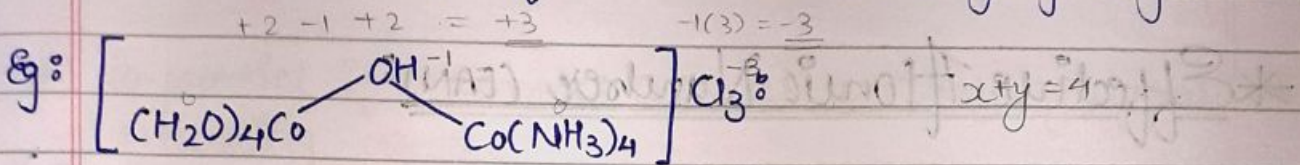 +2 -1 +2 = +3 -1(3) = -3
Eg: [ (H₂O)₄Co OH⁻¹ Co(NH₃)₄ ] Cl₃ x+y=4